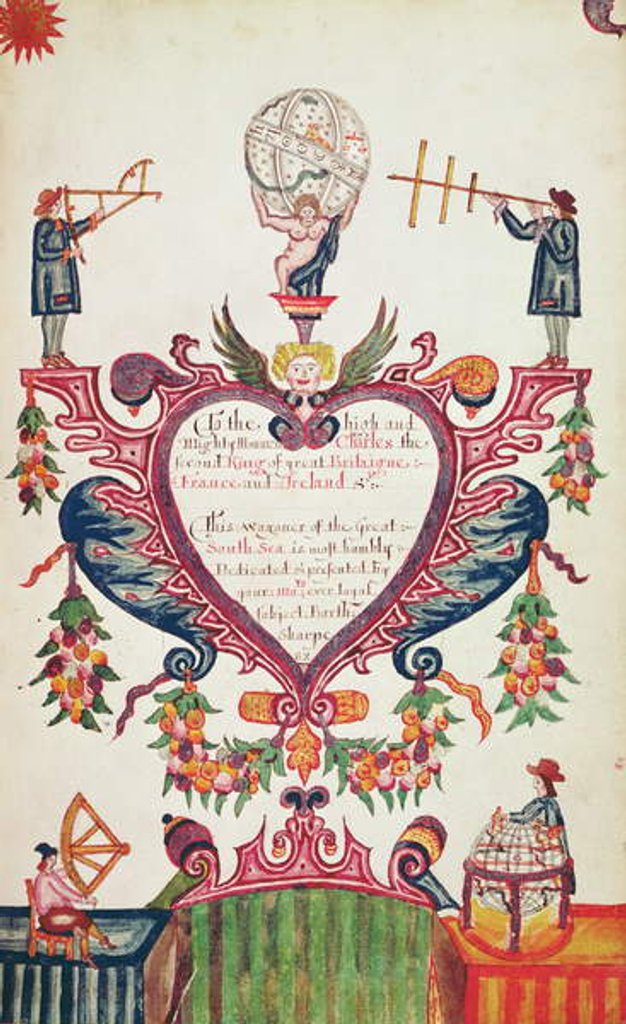 To the high and
Mighty Monarch Charles the
second King of great Britaigne
France and Ireland &c:
This waggoner of the Great
South Sea is most humbly
Dedicated & presented by
your Ma:ties ever loyal
Subject Barth:
Sharpe